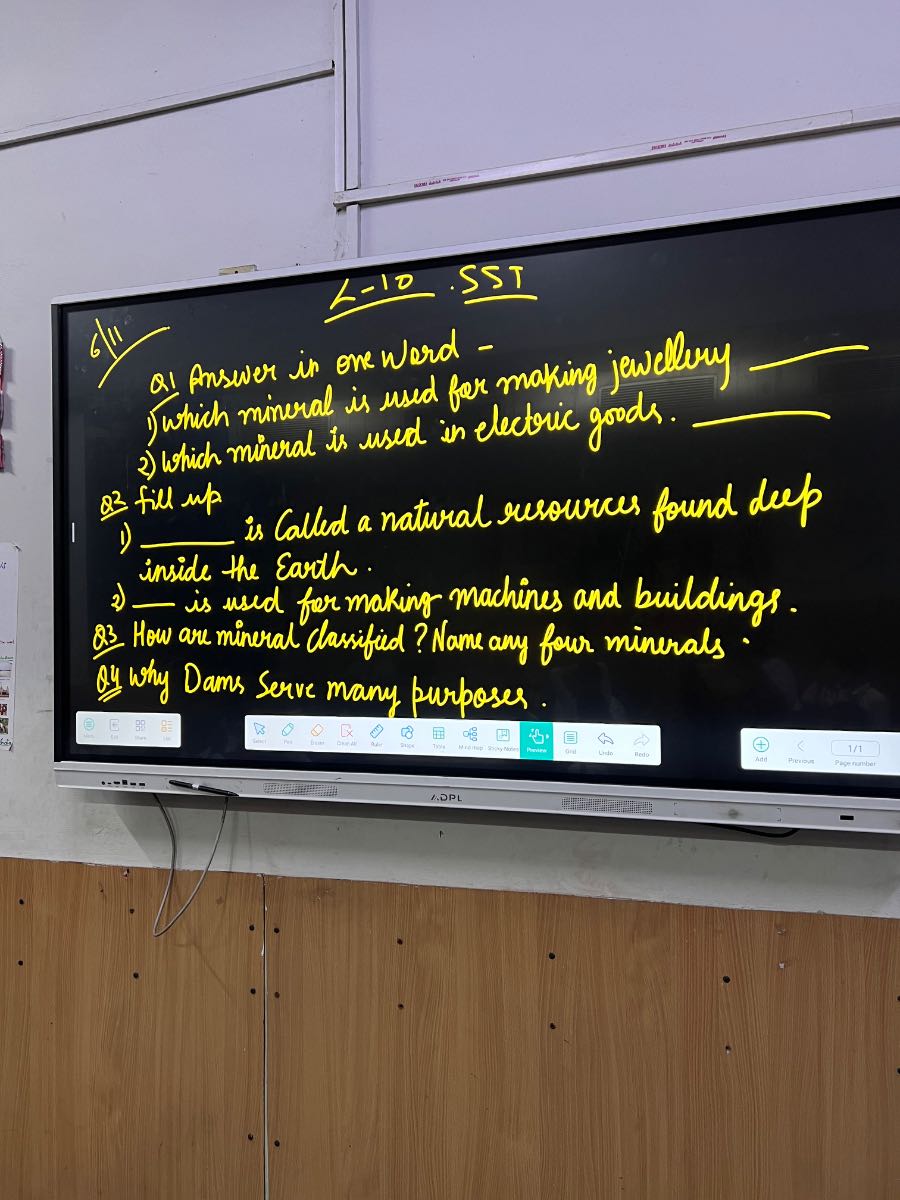 L-10 . SST
6/11
Q1 Answer in one Word -
1) Which mineral is used for making jewellery ______
2) Which mineral is used in electric goods. ______
Q2 fill up
1) ______ is Called a natural resources found deep
inside the Earth.
2) ___ is used for making machines and buildings.
Q3 How are mineral Classified ? Name any four minerals .
Q4 Why Dams Serve many purposes.
Menu Exit Share
Select Pen Eraser Clear All Ruler Shape Table Mind map Sticky Notes Preview Grid Undo Redo
Add Previous 1/1 Page number
ADPL